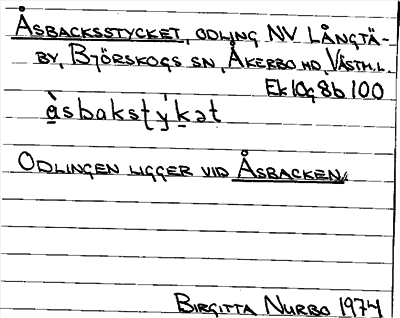 ÅSBACKSSTYCKET, ODLING NV LÅNGTÄ-
BY, BJÖRSKOGS SN, ÅKERBO HD, VÄSTM.L.
Ek 10g 8b 100
ODLINGEN LIGGER VID ÅSBACKEN.
BIRGITTA NURBO 1974